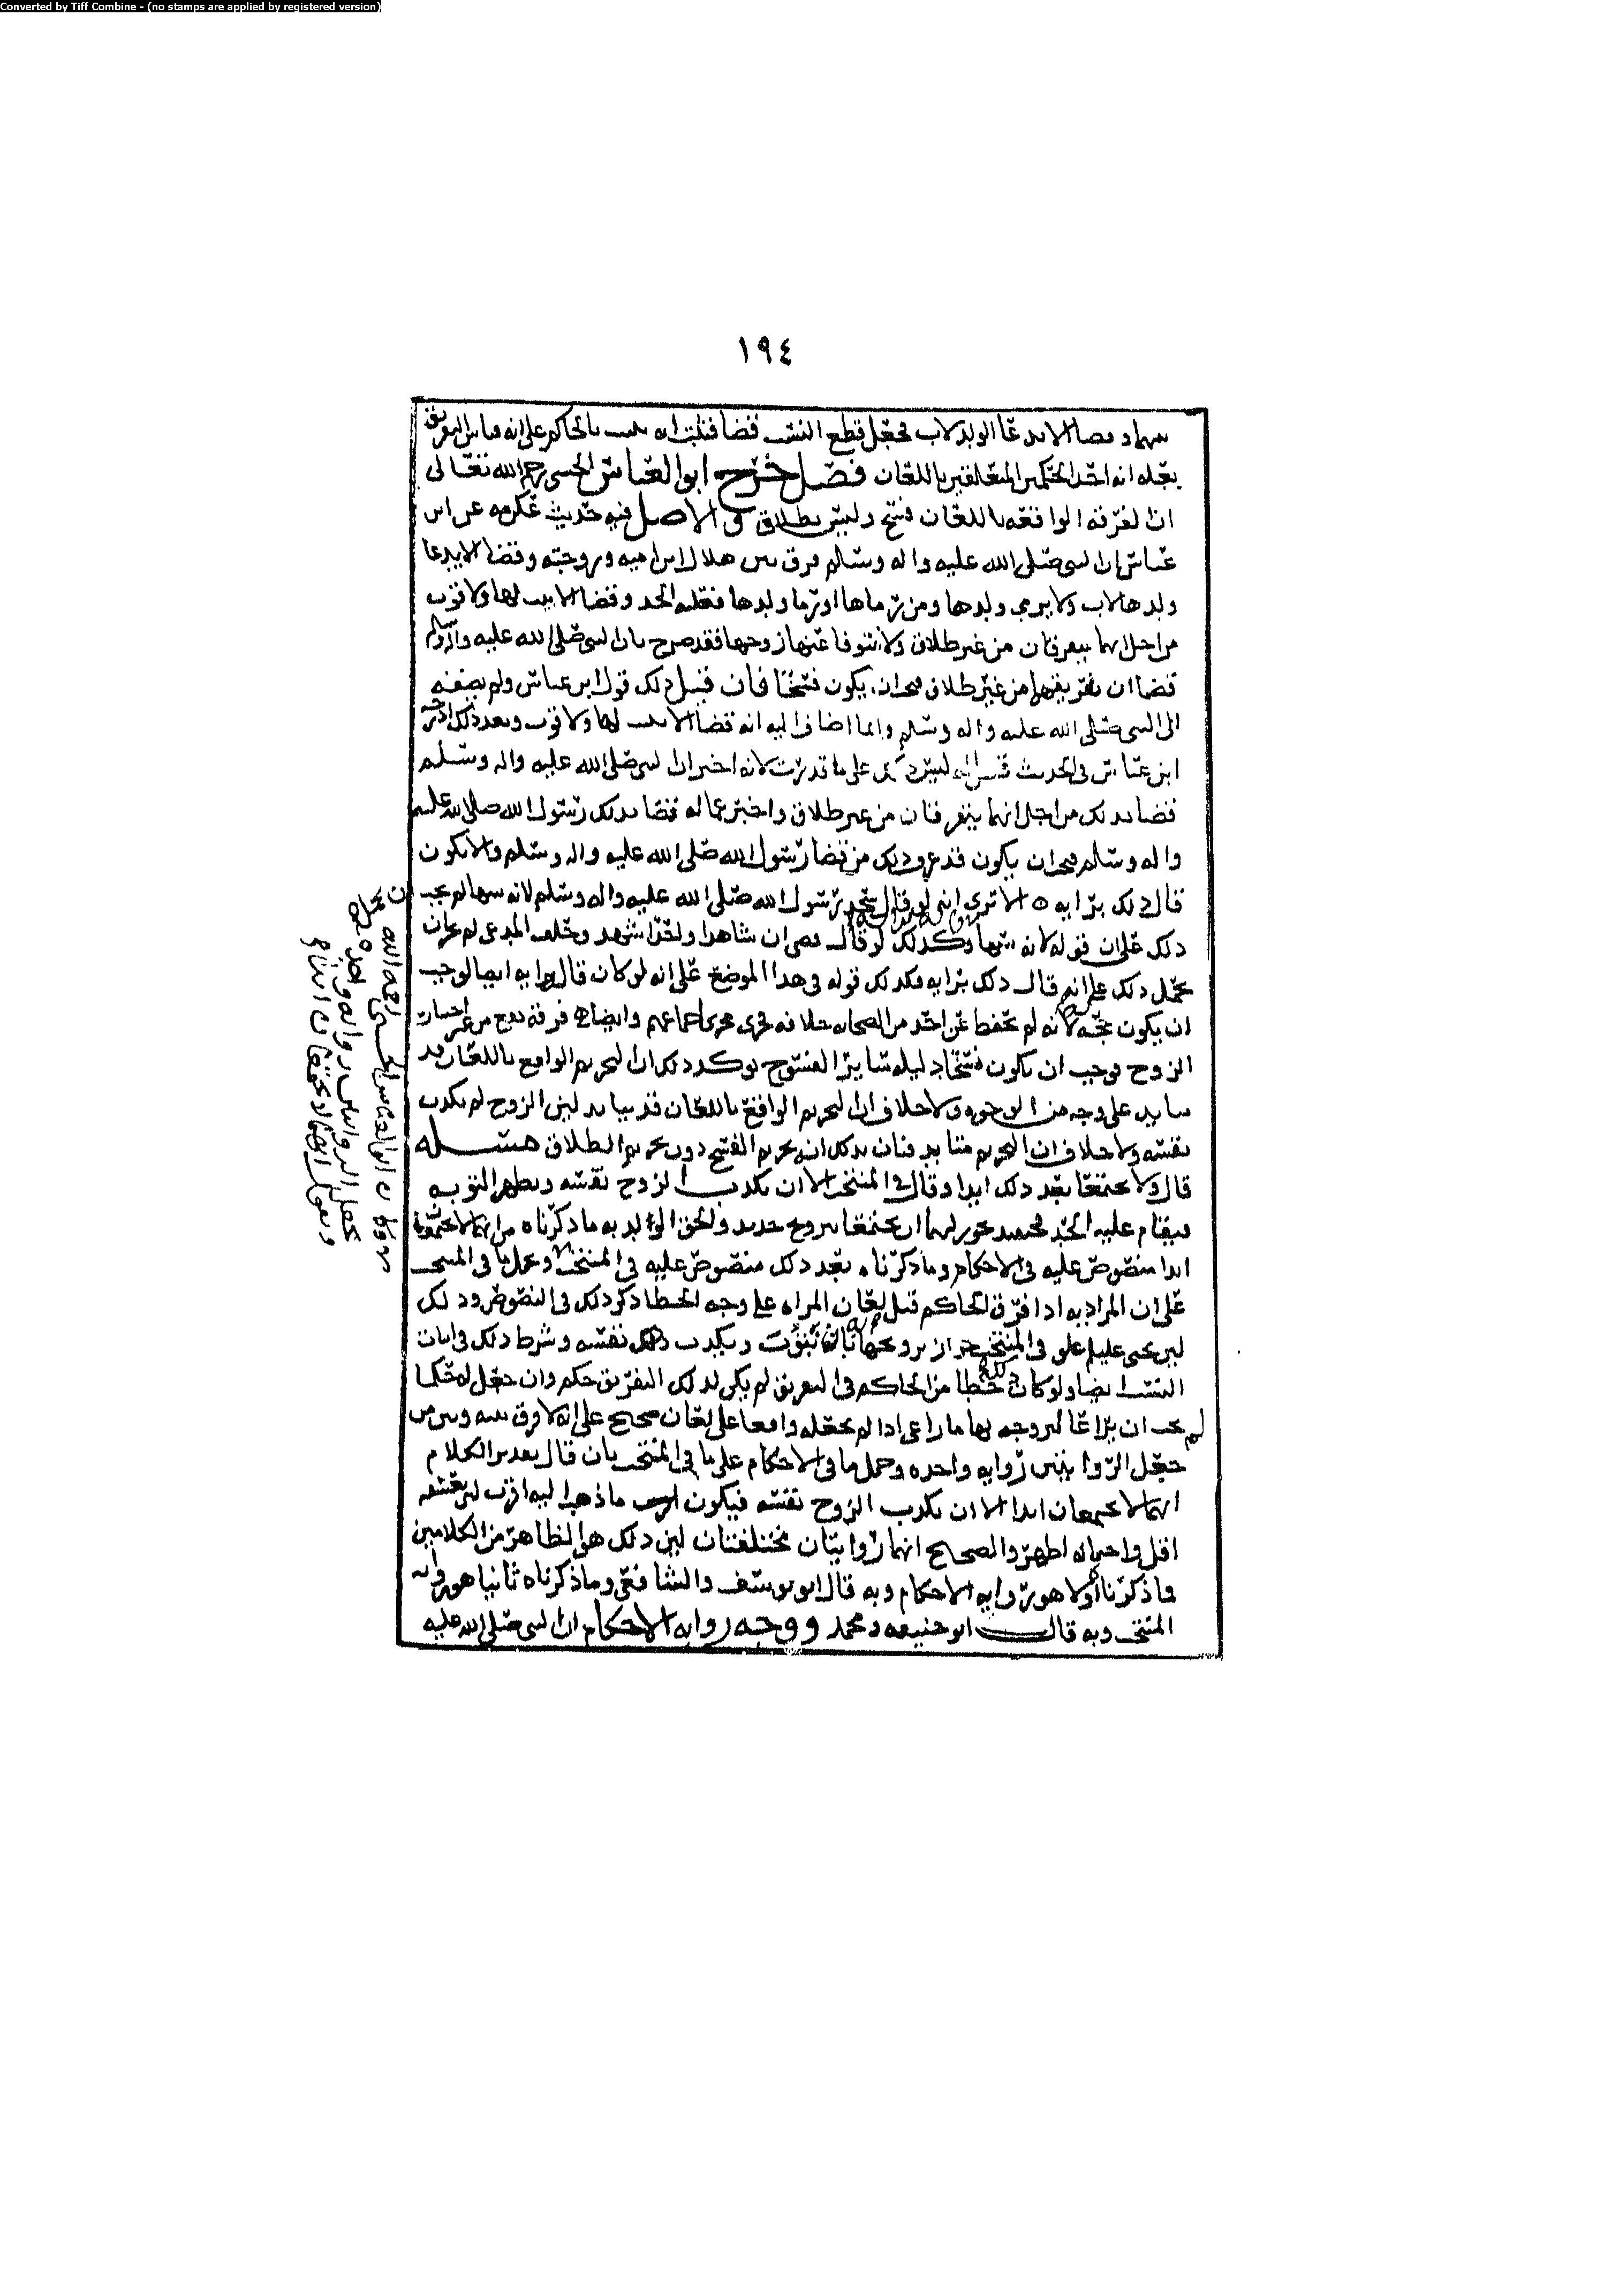 Converted by Tiff Combine - (no stamps are applied by registered version)
١٩٤
بينهما وقضا الا يدعا الولد لاب فجعل قطع النسب قضا فثبت انه بالحاكم على انه قياس التفريق
بعله انه احد الحكمين المتعالقين باللعان فصل خرج ابو العباس الحسني رحمه الله تعالى
ان الفرقه الواقعه باللعان فسخ وليس بطلاق والاصل فيه حديث عكرمه عن ابن
عباس ان النبي صلى الله عليه واله وسلم فرق بين هلال ابن اميه وزوجته وقضا الا يدعا
ولدها لاب ولا يرمى ولدها ومن رماها او رما ولدها فعليه الحد وقضا الا بيت لها ولا قوت
من اجل انهما يتفرقان من غير طلاق ولا متوفا عنها زوجها فقد صرح بان النبي صلى الله عليه واله وسلم
قضا ان تفريقهما من غير طلاق فيجب ان يكون فسخا فان قيل ذلك قول ابن عباس ولم يضفه
الى النبي صلى الله عليه واله وسلم وانما اضاف اليه انه قضا الا بيت لها ولا قوت وبعد ذلك ادرجه
ابن عباس في الحديث قيل له ليس ذلك على ما قدرت لانه اخبر ان النبي صلى الله عليه واله وسلم
قضا بذلك من اجل انهما يتفرقان من غير طلاق واخبر عما له قضا بذلك رسول الله صلى الله عليه
واله وسلم فيجب ان يكون قد عرف ذلك من قضا رسول الله صلى الله عليه واله وسلم ولا يكون
قال ذلك برايه ه الا ترى انه لو قال سجد رسول الله صلى الله عليه واله وسلم لانه سها لم يجب ان يحمل
ذلك على ان قوله لانه سها وكذلك لو قال قضى ان شاهدا واحدا شهد وحلف المدعي لم يجز ان
يحمل ذلك على انه قال ذلك برايه فكذلك قوله في هذا الموضع على انه لو كان قال برايه ايضا لوجب
ان يكون حجه لانه لم يحفظ عن احد من الصحابه خلافه فجرى مجرى اجماعهم وايضا هو فرقه تقع من غير اختيار
الزوج فوجب ان يكون فسخا دليله سائر الفسوخ يوكد ذلك ان التحريم الواقع باللعان قد
يتابد على وجه من الوجوه ولا خلاف ان التحريم الواقع باللعان قد يتابد لئن الزوج لم يكذب
نفسه ولا خلاف ان التحريم متابد فبان بذلك انه تحريم الفسخ دون تحريم الطلاق مسئله
قال ولا يجتمعا بعد ذلك ابدا وقال في المنتخب الا ان يكذب الزوج نفسه ويظهر التوبه
فيقام عليه الحد فحينئذ يجوز لهما ان يجتمعا بتزويج جديد ولحق الولد به ما ذكرناه من انهما لا يجتمعان
ابدا منصوص عليه في الاحكام وما ذكرناه بعد ذلك منصوص عليه في المنتخب وحمل ما في المنتخب
على ان المراد به اذا فرق الحاكم قبل لعان المراه على وجه الخطا ذكر ذلك في النصوص وذلك
لئن يحيى عليه السلم علق في المنتخب جواز تزويجها بالتوبه ويكذب نفسه وشرط ذلك في اثبات
النسب ايضا ولو كان ذلك خطا من الحاكم في التفريق لم يكن لذلك التفريق حكم وان جعل له حكما
لم يجب ان يراعا لتزوجه بها ما راعى اذا لم يجعله واقعا على لعان صحيح على انه لا فرق بينه وبين من
جعل الروايتين روايه واحده وحمل ما في الاحكام على ما في المنتخب بان قال بعد من الكلام
انهما لا يجتمعان ابدا الا ان يكذب الزوج نفسه فيكون ما ذهب اليه اقرب لئن تعسفه
اقل واحتماله اظهر والصحيح انهما روايتان مختلفتان لئن ذلك هو الظاهر من الكلامين
فما ذكرنا اولا هو روايه الاحكام وبه قال ابو يوسف والشافعي وما ذكرناه ثانيا هو روايه
المنتخب وبه قال ابو حنيفه ومحمد ووجه روايه الاحكام ان النبي صلى الله عليه
ابو العباس الحسني رحمه الله